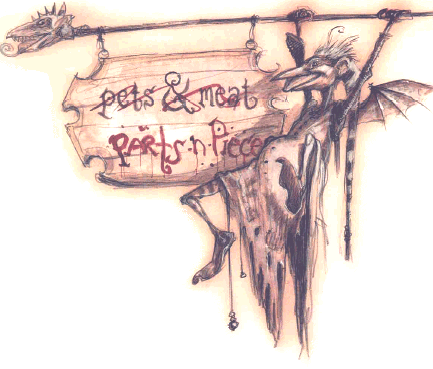 pets & meat
PARts n Pieces